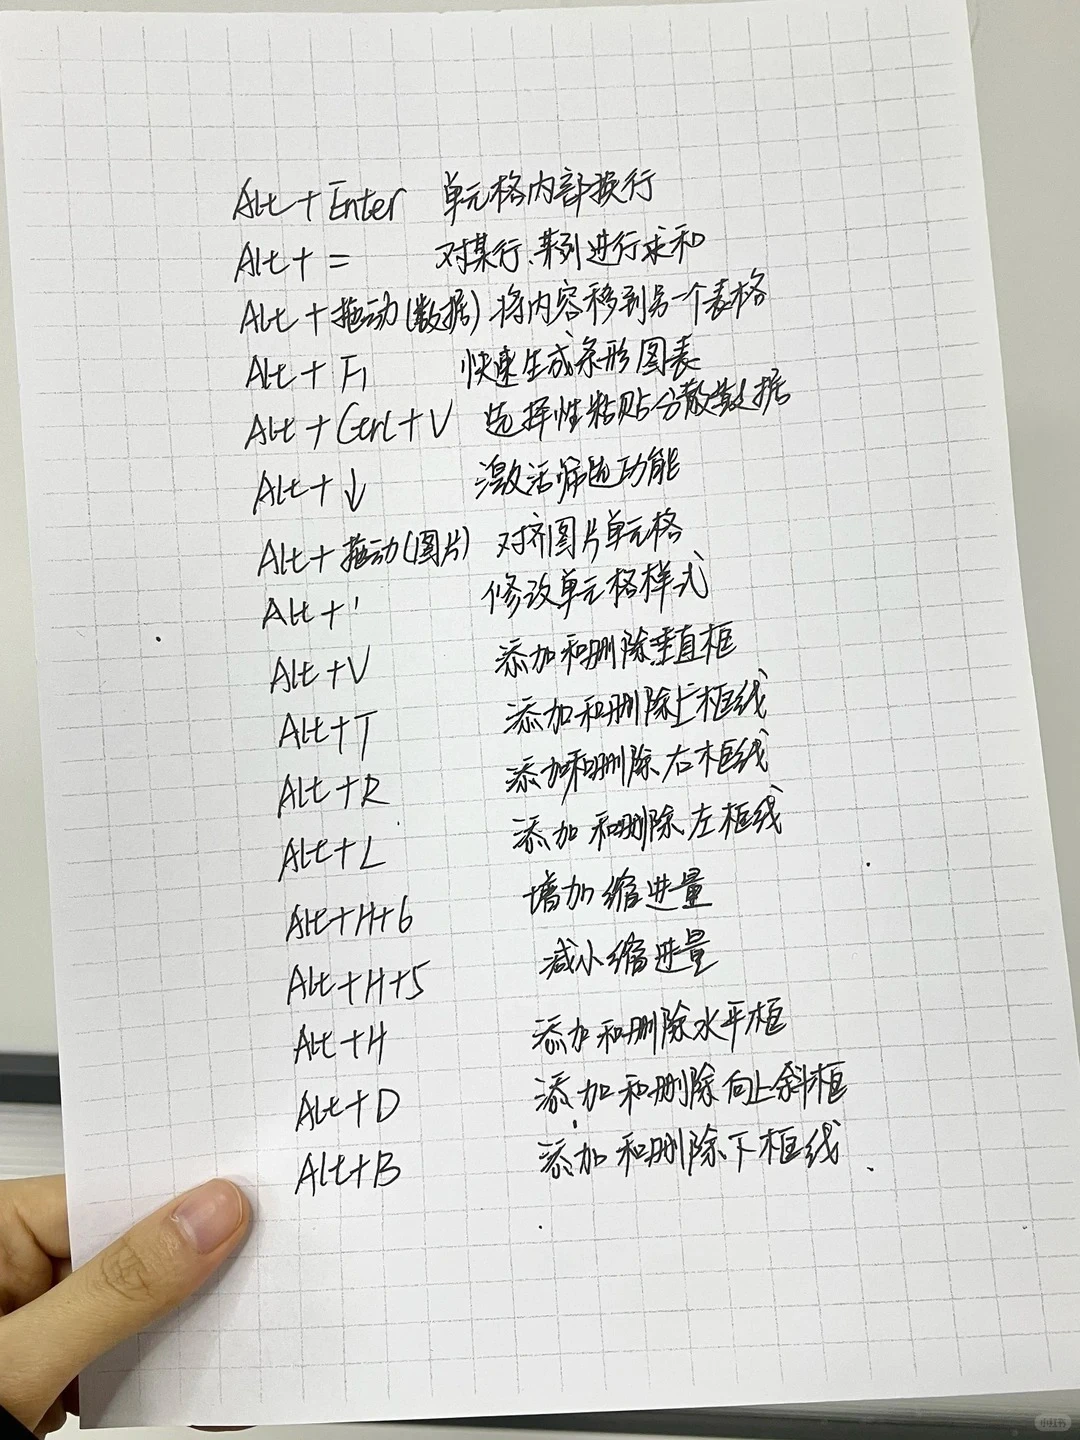 Alt+Enter 单元格内部换行
Alt+= 对某行、某列进行求和
Alt+拖动(数据) 将内容移到另一个表格
Alt+F1 快速生成条形图表
Alt+Ctrl+V 选择性粘贴分散数据
Alt+↓ 激活筛选功能
Alt+拖动(图片) 对齐图片单元格
Alt+' 修改单元格样式
Alt+V 添加和删除垂直框
Alt+T 添加和删除上框线
Alt+R 添加和删除右框线
Alt+L 添加和删除左框线
Alt+H+6 增加缩进量
Alt+H+5 减小缩进量
Alt+H 添加和删除水平框
Alt+D 添加和删除向上斜框
Alt+B 添加和删除下框线、
小红书